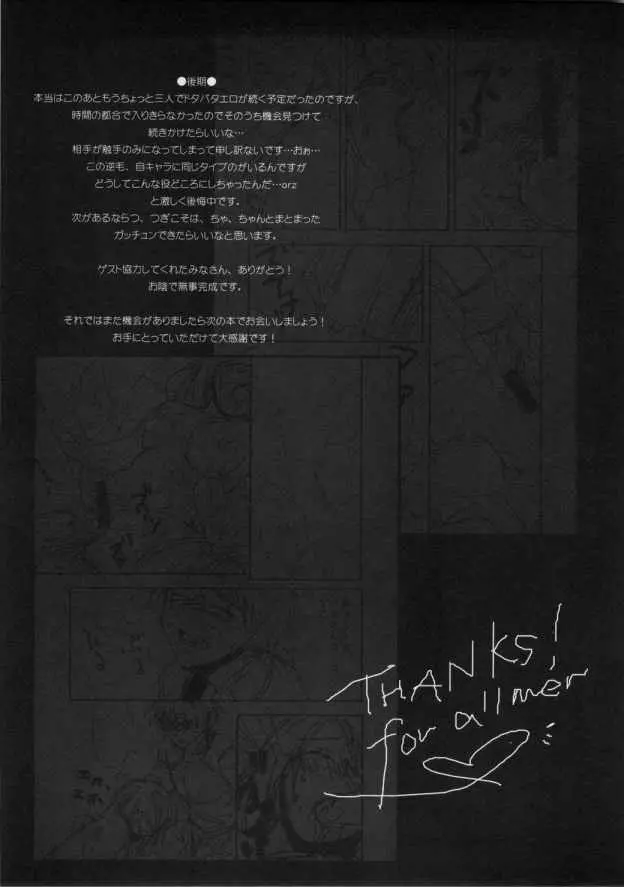 ●後期●
本当はこのあともうちょっと三人でドタバタエロが続く予定だったのですが、
時間の都合で入りきらなかったのでそのうち機会見つけて
続きかけたらいいな…
相手が触手のみになってしまって申し訳ないです…おぉ…
この逆毛、自キャラに同じタイプのがいるんですが
どうしてこんな役どころにしちゃったんだ…orz
と激しく後悔中です。
次があるならつ、つぎこそは、ちゃ、ちゃんとまとまった
ガッチュンできたらいいなと思います。
ゲスト協力してくれたみなさん、ありがとう!
お陰で無事完成です。
それではまた機会がありましたら次の本でお会いしましょう!
お手にとっていただけて大感謝です!
THANKS!
for all mer